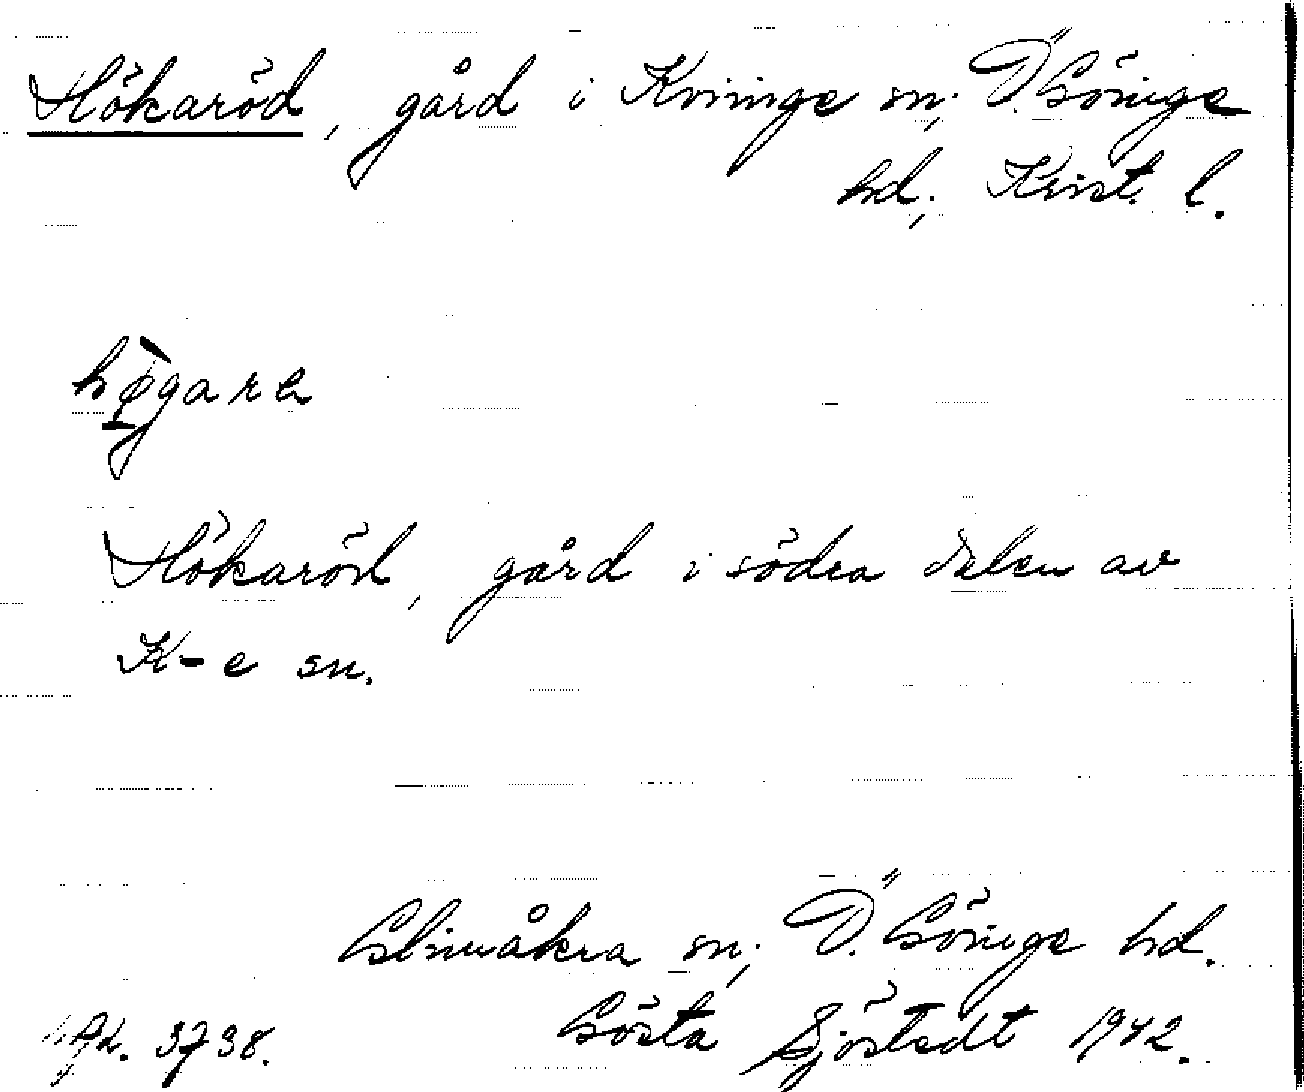 Hökaröd, gård i Kvinge sn; Ö. Göinge
hd; Krist. l.
hø̀garø
Hökaröd, gård i södra delen av
K-e sn.
Glimåkra sn; Ö. Göinge hd.
3738. Gösta Sjöstedt 1942.